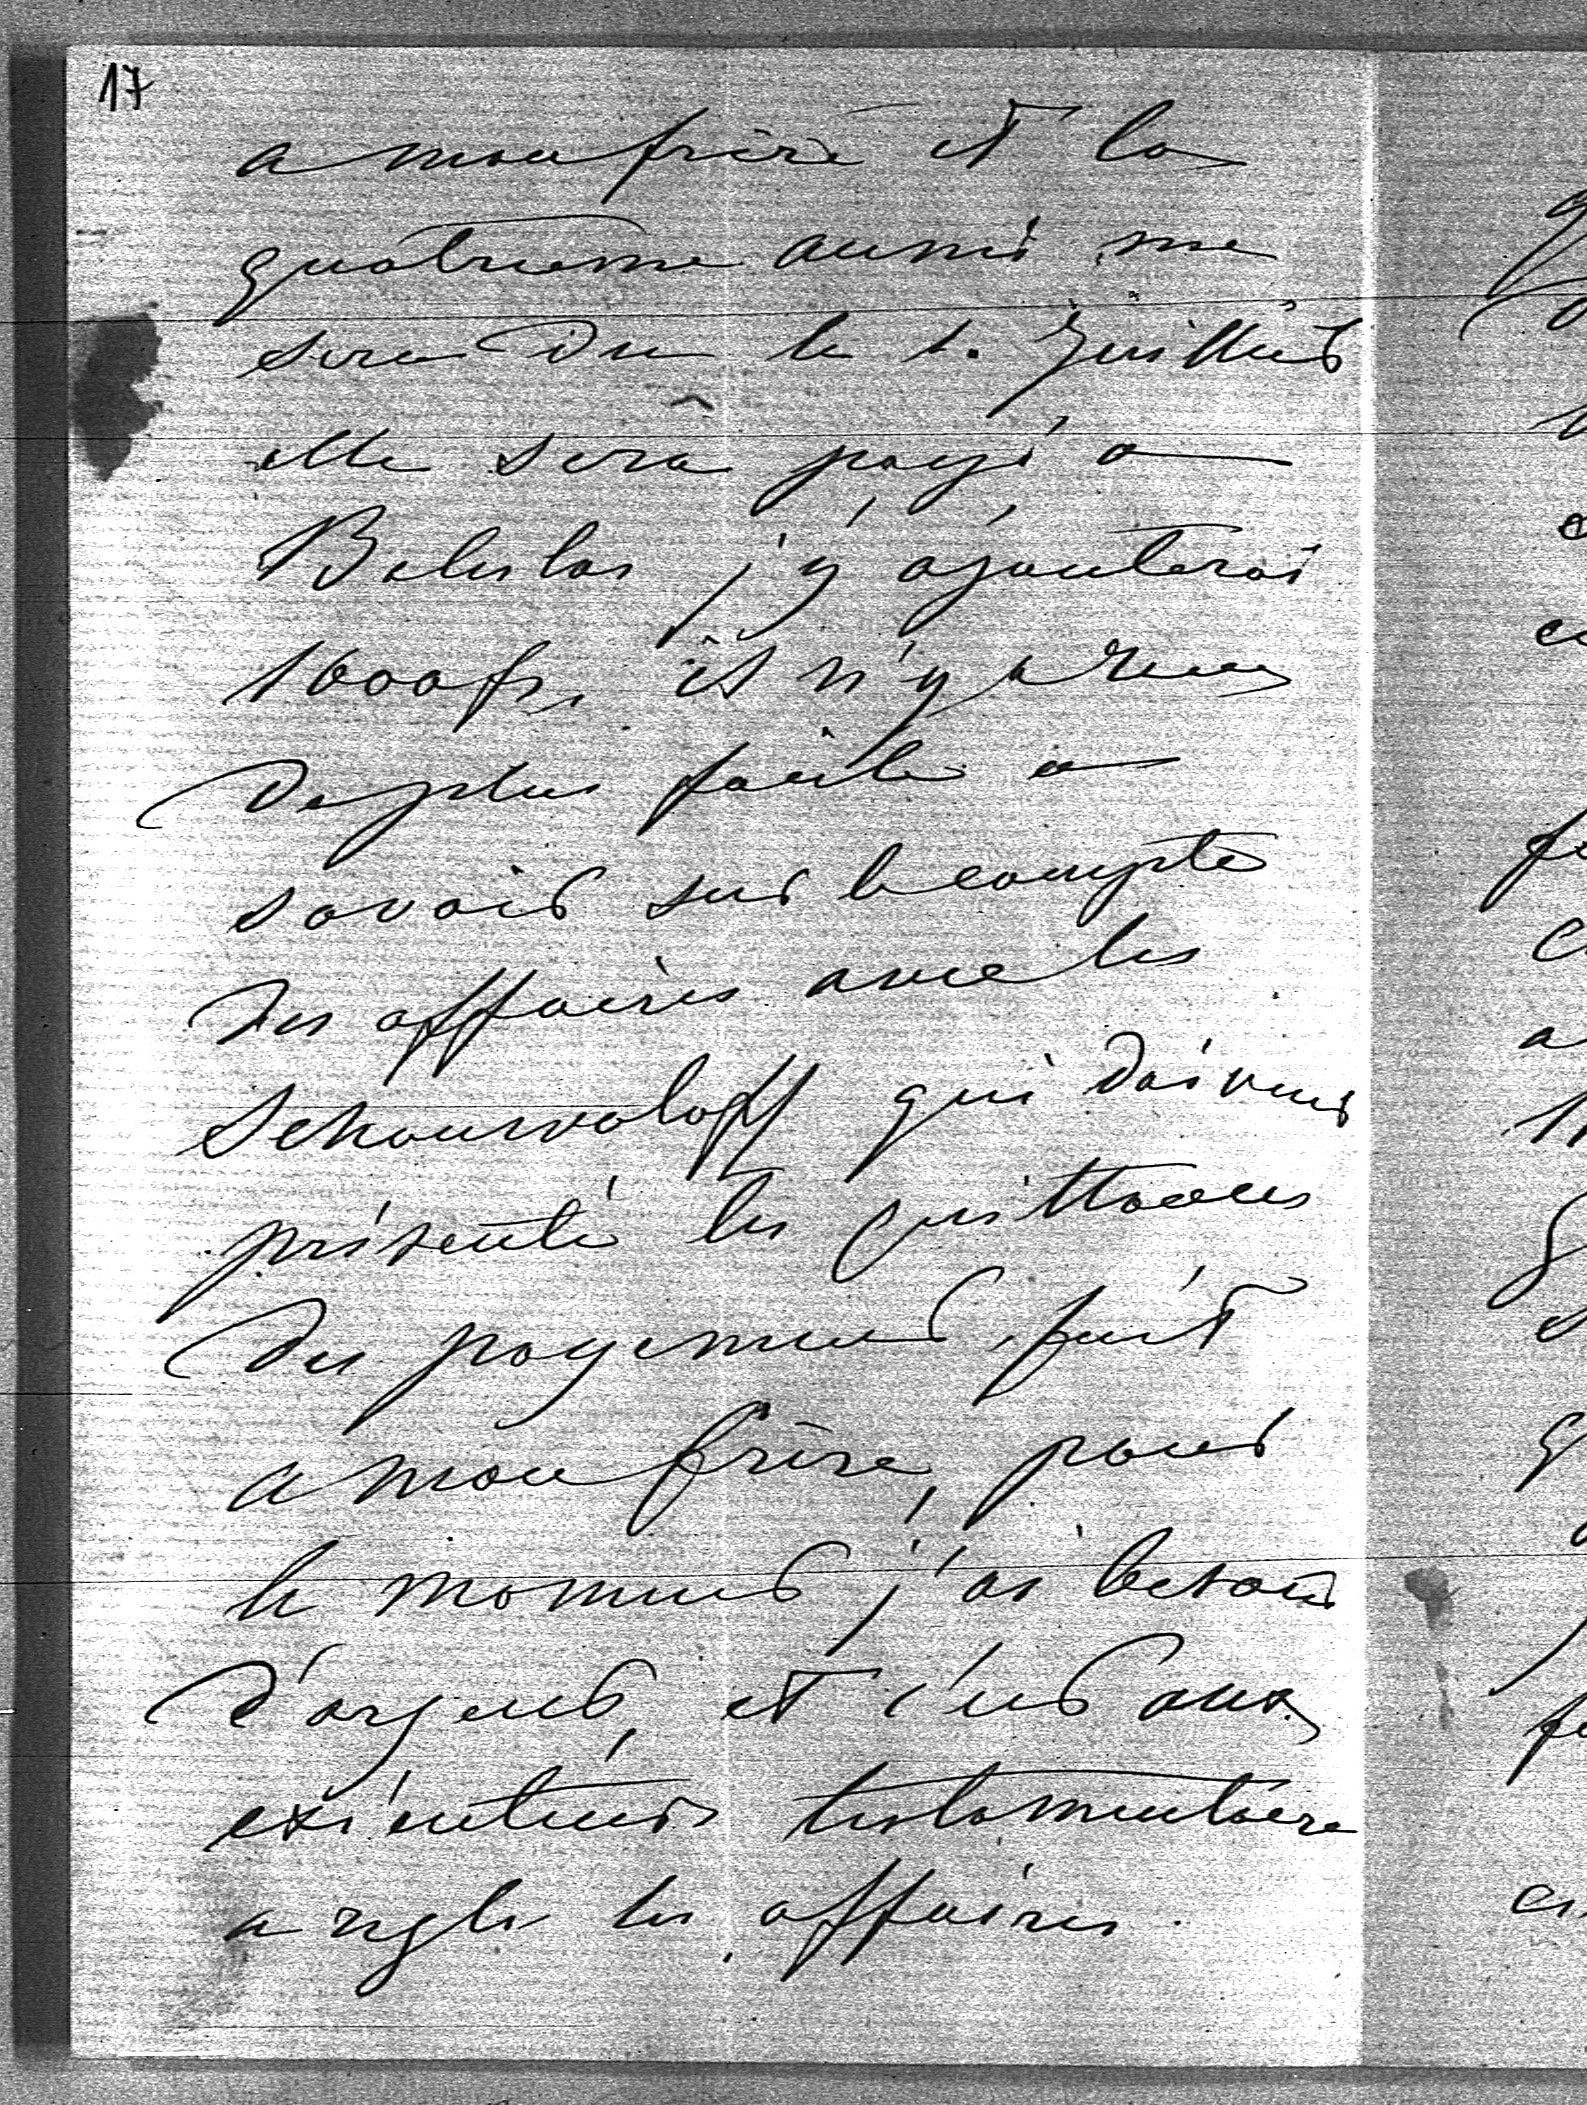 17
a mon frère et la
quatrième année me
sera du le 1. Juillet
elle sera payé a
Boleslas j'y ajouterai
1000 frs, il n'y a rien
de plus facile a
savoir sur le compte
des affaires avec les
Schouwaloff qui doivent
présenté les quittances
des payement fait
a mon frère, pour
le moment j'ai besoin
d'argent, et c'est aux
exécuteurs testamentaire
a regle les affaires.